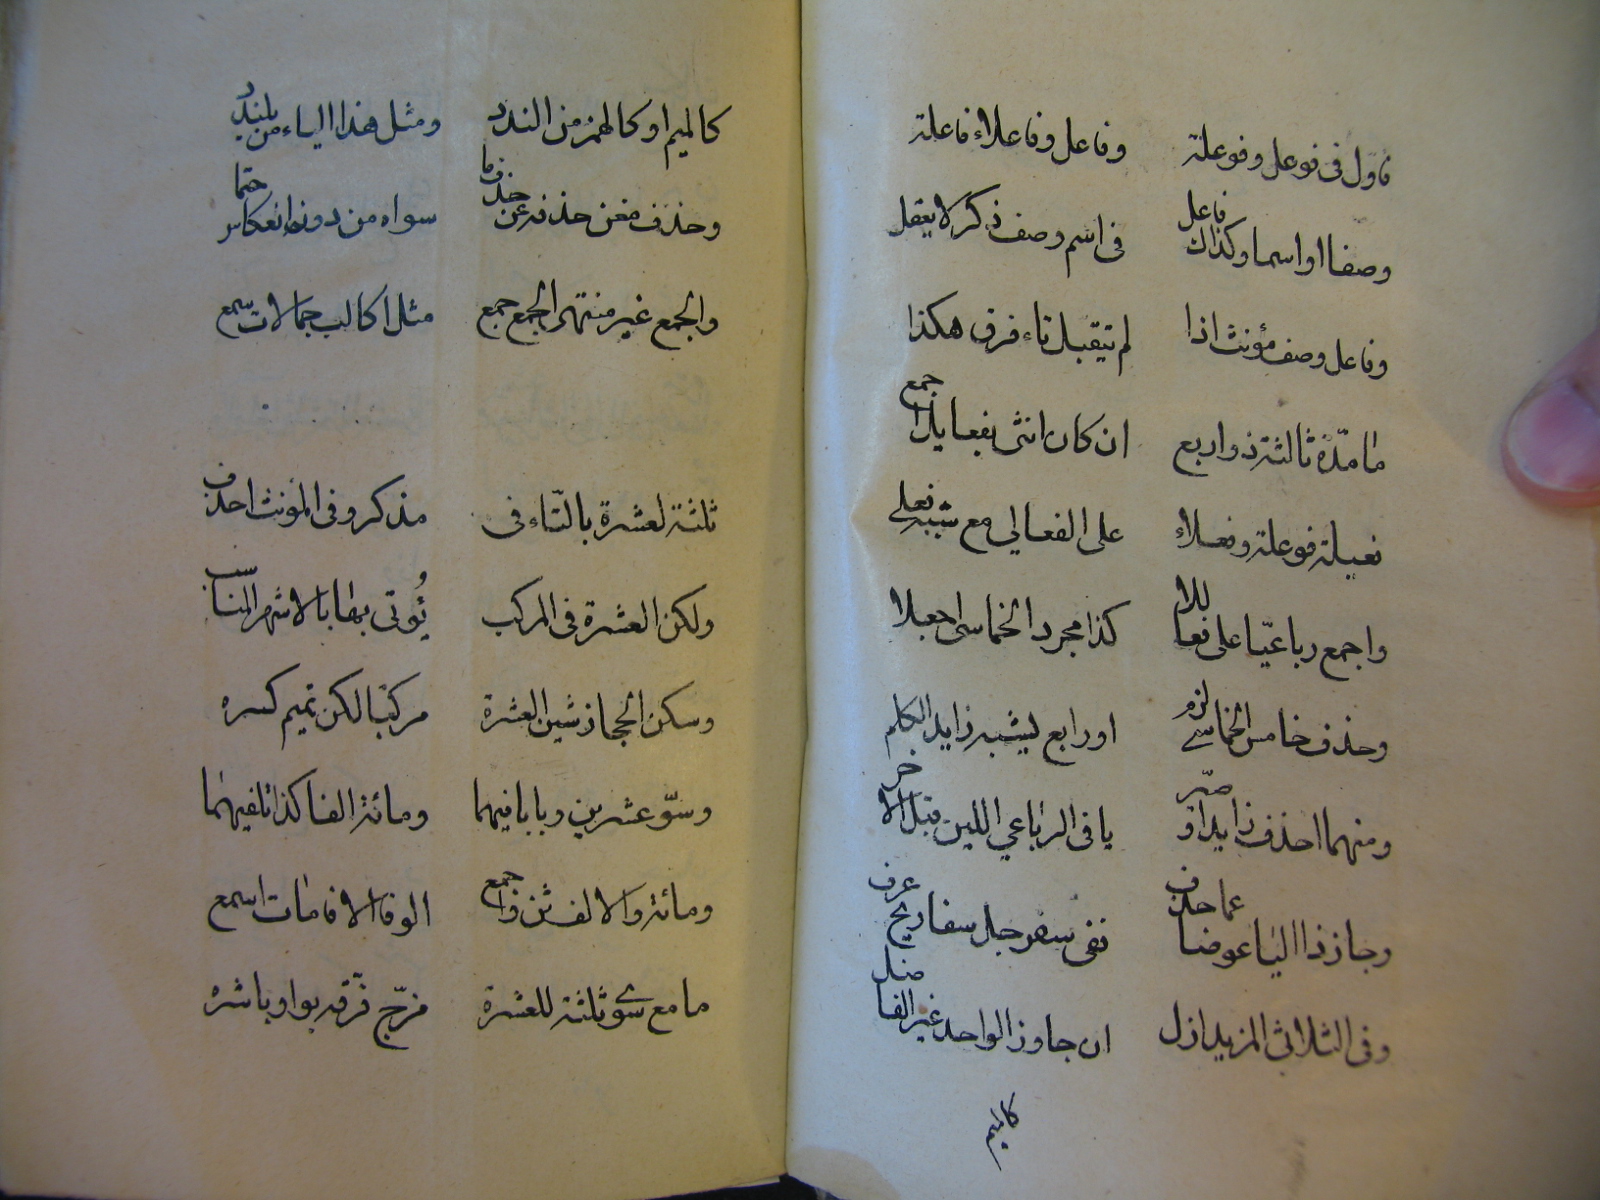 فاول فى فوعل وفوعلة وفاعل وفاعلاء فاعلة
وصفا او اسما وكذاك فاعل فى اسم وصف ذكر لا يعقل
وفاعل وصف مؤنث اذا لم تيقبل تاء فرق هكذا
ما مدّة ثالثة ذو اربع ان كان انثى بفعايل اجمع
فعيلة فوعلة وفعلاء على الفعالي مع شبه فعلى
واجمع رباعيّا على فعاللا كذا مجرد الخماسى اجعلا
وحذف خامس الخماسي لزم او رابع يشبه زايد الكلم
ومنهما احذف زايدا و يا فى الرباعي اللين قبل الاخر
وجاز ذا اليا عوضا عما حذف ففى سفرجل سفاريج عرف
وفى الثلاثى المزيد ازل ان جاوز الواحد غير الفاضل
كالميم
كالميم او كالهمز من الندد ومثل هذا الياء من يلندد
وحذف مغن حذفه عن حذف ما سواه من دونه انعكاس حتما
والجمع غير منتهى الجمع جمع مثل اكالب جمالات سمع
ثلثة لعشرة بالتاء فى مذكر وفى المونث احذف
ولكن العشرة فى المركب يُوتى بها بالاشهر المناسب
وسكن الحجاز شين العشرة مركبا لكن تميم كسره
وسوّ عشرين وبابا فيهما ومائة الفا كذا تلفيهما
ومائة والالف ثن واجمع الوفا الافا مات اسمع
ما مع سوى ثلثة للعشرة مزّج فرّقه بواو باشره